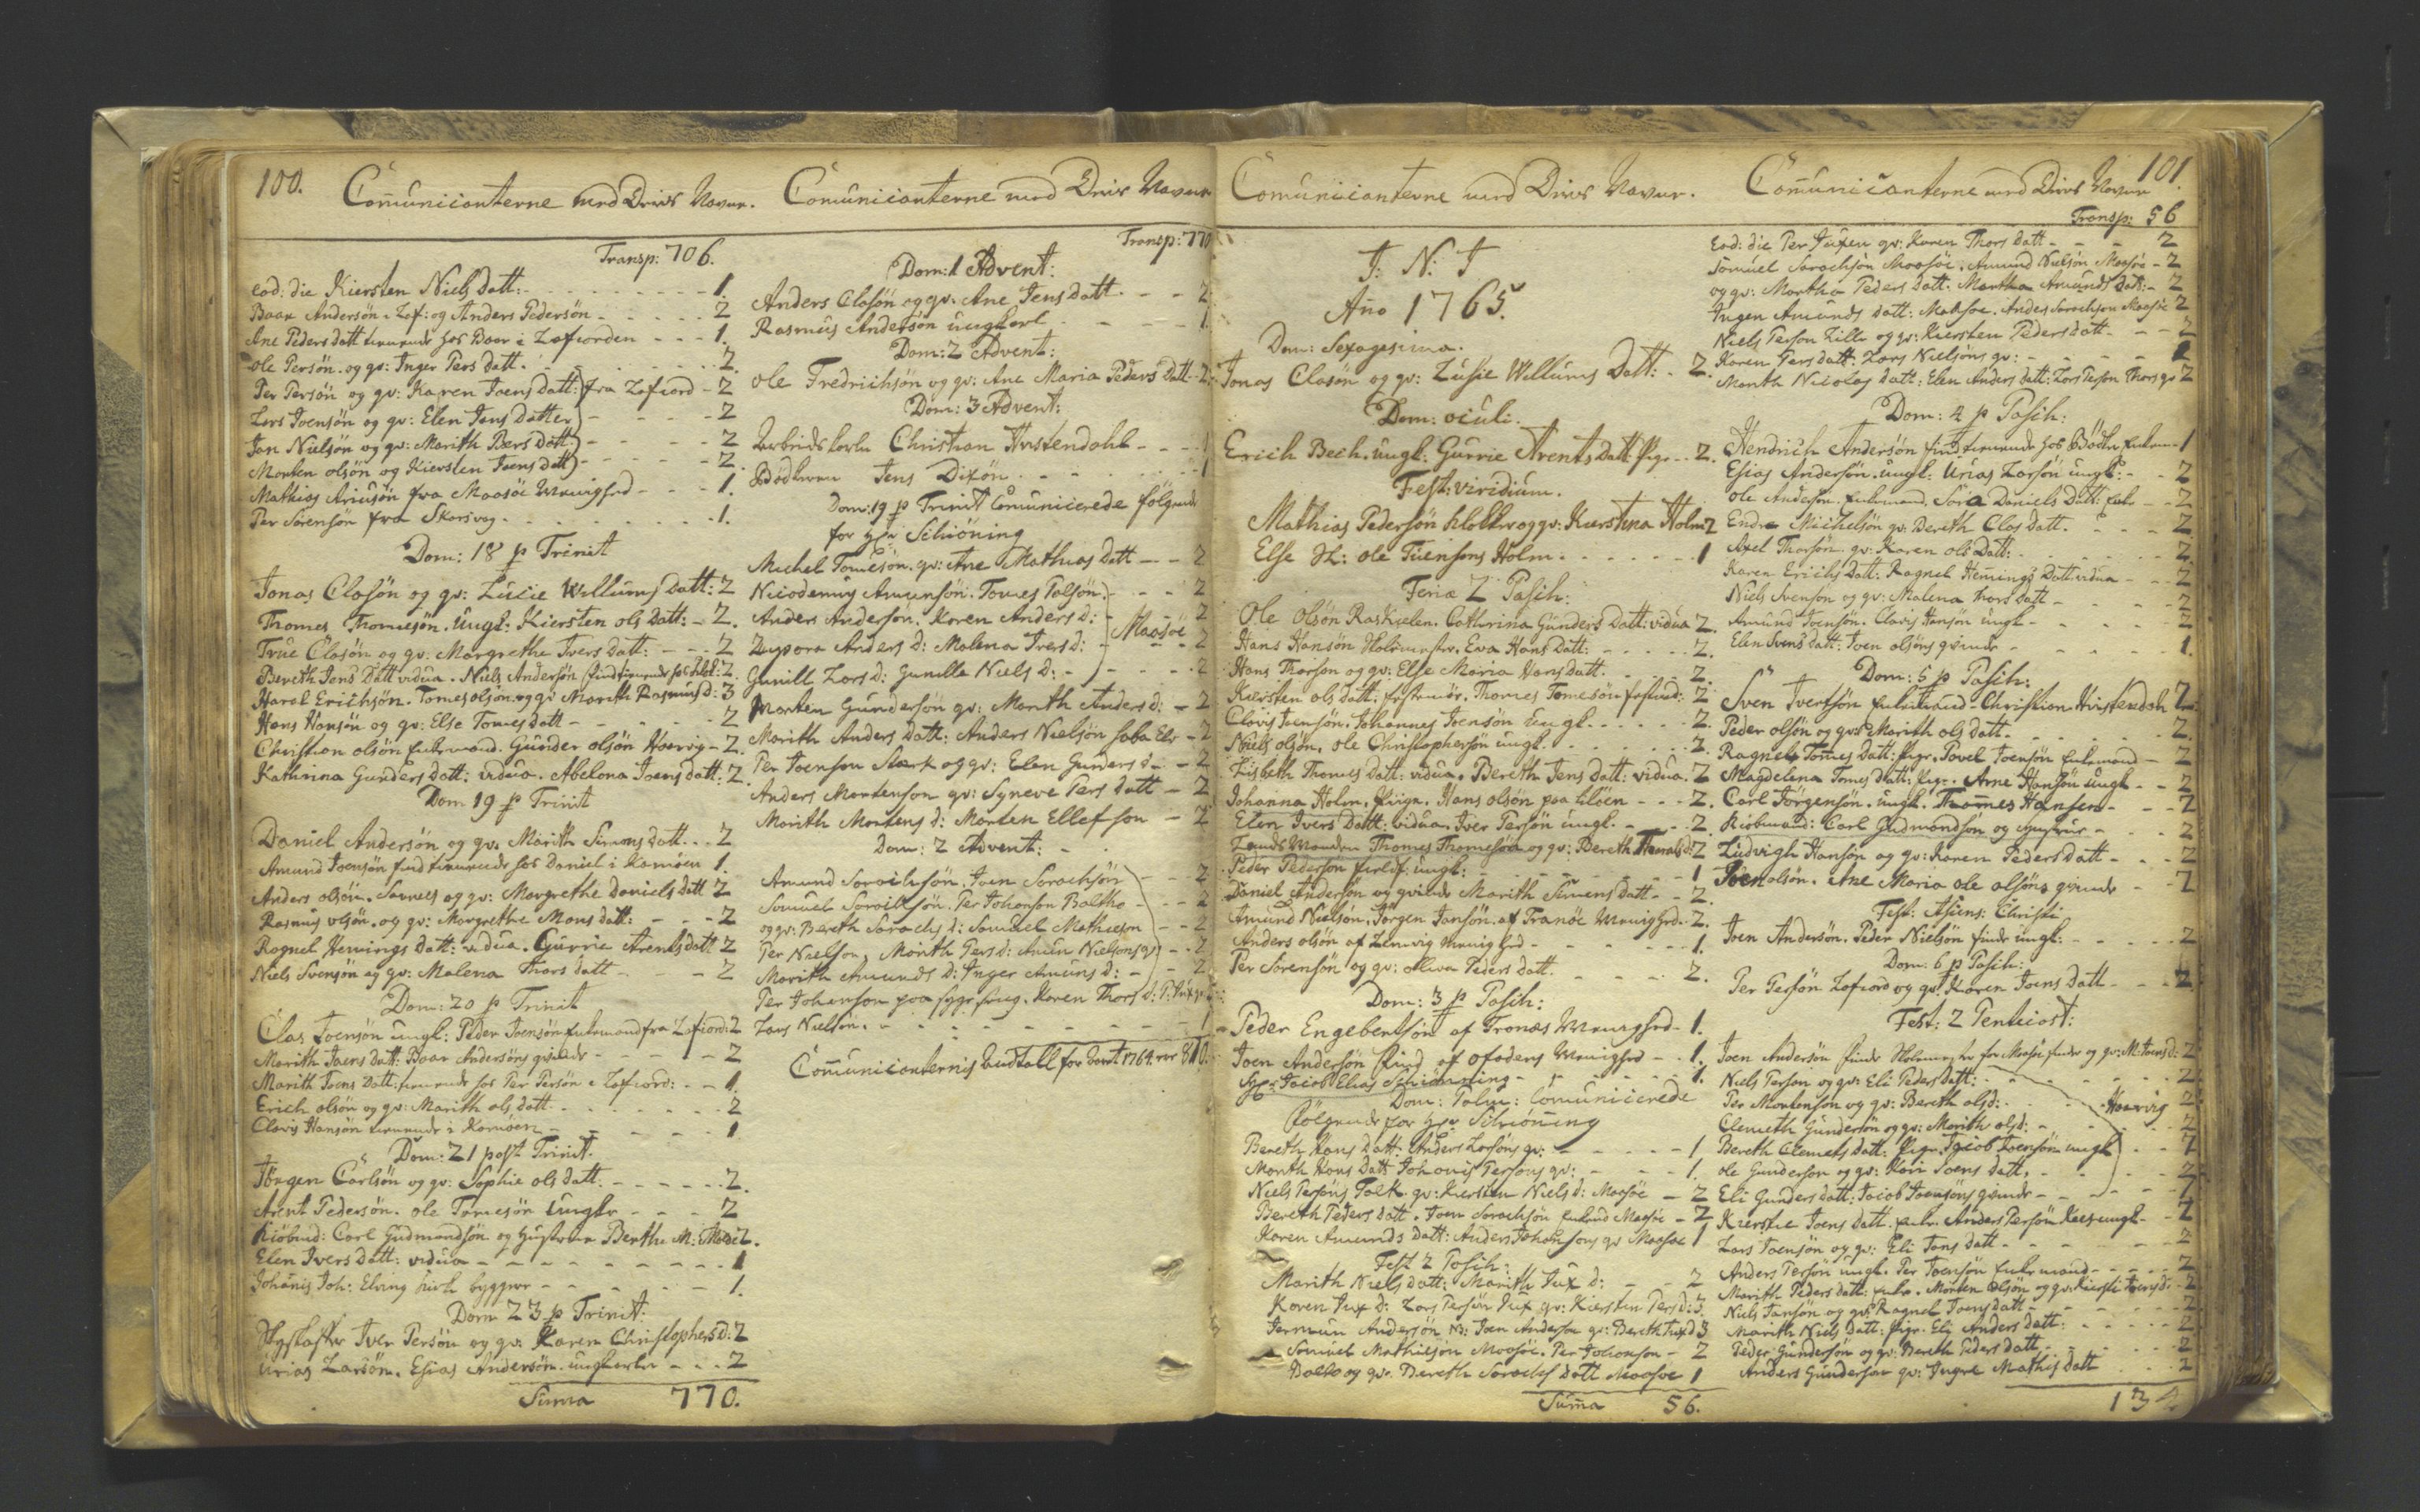 100.
Comunicanterne med Deris Navne.
Transp: 706.
eod: die Kiersten Niels datt: - 1.
Baar Andersön i Laf: og Anders Pedersön - 2
Ane Peders datt tienende hos Baar i Lafiorden - 1.
Ole Persön og qv: Inger Pers datt. 2.
Per Persön og qv: Karen Joens datt: fra Lafiord - 2
Lars Joensön og qv: Elen Jens datter - 2
Jon Nielsön og qv: Marith Bers datt: - 2
Morten olsön og Kiersten Joens datt - 2.
Mathias Ariensön fra Maasöe Menighed - 1.
Per Sörensön fra Skarsvog - 1.
Dom: 18 p Trinit
Jonas Clasön og qv: Lucie Willums datt: 2
Thomes Thomesön. Ungk: Kiersten ols datt: - 2.
True Clasön og qv: Margrethe Ivers datt: - 2
Bereth Jens Datt vidua. Niels Andersön 2.
Harel Erichsön. Tomes olsön og qv: Marith Rasmus d: 3
Hans Hansön og qv: Else Tomes datt - 2
Christian olsön Enkemand. Gunder olsön Hoervig - 2.
Kathrina Gunders datt: vidua. Abelona Joens datt: 2.
Dom 19 p Trinit
Daniel Andersön og qv: Marith Simons datt. 2
Amund Joensön find tienende hos Daniel i Kamöen 1.
Anders olsön. Sarnes og qv: Margrethe Daniels datt 2
Rasmus olsön og qv: Margrethe Mons datt: - 2
Ragnel Hemings datt: vidua. Gurrie Arents datt 2
Niels Svensön og qv: Malena Thors datt - 2
Dom: 20 p Trinit
Clas Joensön ungk: Peder Joensön Enkemand fra Lafiord: 2
Marith Joens datt: Baar Andersöns qvinde - 2
Marith Joens datt: tienende hos Per Persön i Lafiord: - 1.
Erich olsön og qv: Marith ols datt - 2
Claus Hansön tienende i Kamöen - 1
Dom: 21 post Trinit.
Jörgen Carlsön og qv: Sophie ols datt. - 2.
Arent Pedersön. ole Tomesön Ungkr - 2
Kiöbmd: Carl Gudmandsön og Hustrue Berthe M: 2.
Elen Ivers datt: vidua - 1
Johanis Joh: Elving kirk bygger - 1.
Dom 23 p Trinit:
Iver Persön og qv: Karen Christophers d: 2
Urias Larsön. Esias Andersön. ungkarle - 2
Suma 770.
Comunicanterne med Deris Navne
Transp: 770
Dom: 1 Advent:
Anders Clasön og qv: Ane Jens datt - 2
Rasmus Andersön ungkarl - 1
Dom: 2 Advent:
ole Fredrichsön og qv: Ane Maria Peders datt - 2.
Dom: 3 Advent:
Arbeids karle Christian Hvistendahl - 1
Bödkeren Jens Dixön - 1
Dom: 19 p Trinit Comunicerede fölgende
for Hr Schiöning
Michel Tomesön. qv: Ane Mathias datt - 2
Nicodemus Amunsön. Tomes Polsön. - 2
Anders Andersön. Karen Anders d: - 2
Zippora Anders d: Malena Ivers d: Maasöe 2
Gunill Lars d: Gunilla Niels d: - 2
Morten Gundersön qv: Marith Anders d: - 2
Marith Anders datt: Anders Nielsön saba Elv - 2
Per Joensen Stærk og qv: Elen Gunders d - 2
Anders Mortenson qv: Syneve Pers datt - 2
Marith Mortens d: Morten Ellefson - 2
Dom: 2 Advent: -
Amund Sarachsön. Joen Sarachsön - 2
Samuel Sarachsön. Per Johanson Baltho - 2
og qv: Bereth Sarachs d: Samuel Mathieson - 2
Per Nielson, Marith Pers d: Amun Nielsons qv: - 2
Marith Amunds d: Inger Amuns d: - 2
Per Johanson paa syge seng. Karen Thors d:
Lars Nielsön. - 1
Comunicanternis Antall for Aaret 1764 er 810.
Comunicanterne med Deris Navne.
J: N: J
Año 1765.
Dom: Sexagesima.
Jonas Clasön og qv: Lusie Willums Datt: - 2.
Dom: oculi.
Erich Bech. ungk: Gurrie Arents datt: Pige - 2.
Fest: viridium.
Mathias Pedersön klokker og qv: Kierstina Holm 2
Else Sl: ole Tuensons Holm - 1
Feria 2 Pasch:
Ole Olsön Raskielen. Cathrina Gunders Datt: vidua 2.
Hans Hansön Holmester. Eva Hans Datt: - 2.
Hans Thorson og qv: Else Maria Hans datt. - 2.
Kiersten ols datt: festmöe. Thomes Tomesön festmd: 2
Claus Joensön. Johannes Joensön Ungk. - 2.
Niels olsön. ole Christophersön ungk. - 2.
Lisbeth Thomes datt: vidua. Bereth Jens datt: vidua. 2
Johanna Holm. Piige. Hans olsön paa Klöen - 2.
Elen Ivers datt: vidua. Iver Persön ungk. - 2.
Lands Manden Thomes Thomesön og qv: Bereth 2
Peder Pedersön ungk: - 1
Daniel Anderson og qvinde Marith Simens datt - 2.
Amund Nielsön. Jörgen Jansön. af Tranöe Menighed - 2.
Anders olsön af Lenvig Menighed - 1.
Per Sörensön og qv: oliva Peders datt. - 2.
Dom: 3 p Pasch:
Peder Engebertsön af Tronæs Menighed - 1.
Joen Andersön find af ofodens Menighed - 1.
Sgr: Jacob Elias Schiönning - 1.
Dom: Palm: Comunicerede
fölgende for Hr Schiönning
Bereth Hans datt: Anders Larsöns qv: - 1
Marith Hans datt Johanis Persons qv: - 1.
Niels Persöns Falk qv: Kiersten Niels d: Maasöe - 2
Bereth Peders datt. Joen Sarachsön Enkemd Maasöe - 2
Karen Amunds datt: Anders Johansons qv Maasöe 1
Fest 2 Pasch:
Marith Niels datt: Marith Jux d: - 2
Karen Jux d: Lars Persön Jux qv: Kiersten Pers d: 3.
Jermun Andersön NB: Joen Anderson qv: Bereth Jux d 3
Samuel Mathiesön Maasöe. Per Johanson - 2
Balto og qv: Bereth Sarachs datt Maasöe 1
Suma 56.
101.
Comunicanterne med Deris Navne
Transp: 56
eod: die Per Juxen qv: Karen Thors datt - 2
Samuel Sarachsön Maasöe. Amund Nielsön Maasöe - 2
og qv: Martha Peders datt: Martha Amunds datt: - 2
Ingen Amunds datt: Maasöe. Anders Sarachsön Maasöe 2
Niels Person Lille og qv: Kiersten Peders datt - 2
Karen Pers datt: Lars Nielsöns qv: -
Marith Nicolas datt: Elen Anders datt: Lars Person Thors qv 2
Dom: 4 p Pasch:
Hendrich Andersön find tienende hos 1
Esias Andersön. ungk: Urias Larsön ungk: - 2
ole Anderson. Enkemand. Sara Daniels Datt: Enke - 2
Endre Michelsön qv: Bereth Clas datt. - 2
Axel Thorsön. qv: Karen ols Datt: - 2.
Karen Erichs datt: Ragnel Hemings Datt vidua - 2
Niels Svenson og qv: Malena Thors datt - 2
Amund Joensön. Claus Hansön ungk - 2
Elen Svens datt: Joen olsöns qvinde - 1.
Dom: 5 p Pasch:
Sven Ivertsön Enkemand. Christian Hvistendah 2.
Peder olsön og qv: Marith ols datt. - 2.
Ragnel Tomes datt: Pige. Povel Joensön Enkemand - 2
Magdelena Tomes datt: Pige. Arne Hansön ungk - 2
Carl Jörgensön. ungk. Thomes Hansen - 2
Kiöbmand: Carl Gudmandsön og Hustrue - 2
Ludvigh Hansön og qv: Karen Peders datt - 2
Joen olsön. Ane Maria ole olsöns qvinde - 2
Fest: Ascens: Christi
Joen Andersön. Peder Nielsön finde ungk: - 2
Dom: 6 p Pasch:
Per Persön Lafiord og qv: Karen Joens datt - 2
Fest: 2 Pentecost:
Joen Andersön finde Skolemester for Maasöe finder og qv: M: Joens d: 2
Niels Person og qv: Eli Peders datt: - 2
Per Mortensön og qv: Bereth ols d: Hoervig 2
Clemeth Gundersön og qv: Marith ols d: - 2
Bereth Clemets datt: Pige. Jacob Joensön ungk - 2
ole Gunderson og qv: Kari Joens datt. - 2
Eli Gunders datt: Jacob Joensöns qvinde - 2
Kierstie Joens datt. Enke. Anders Persön ungk - 2
Lars Joensön og qv: Eli Jons datt - 2
Anders Persön ungk. Per Joensön Enkemand - 2
Marith Peders datt: Enke. Morten olsön og qv: Kiersti Joens d: - 2
Niels Jansön og qv: Ragnel Joens datt - 2
Marith Niels Datt: Pige. Eli Anders datt: - 2
Peder Gundersön og qv: Bereth Peders datt - 2
Anders Gundersön qv: Ingre Mathis datt - 2